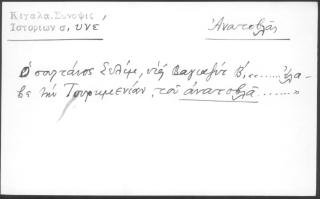 Κιγάλα.Σύνοψις,
Ἱστοριῶν σ. υνε
Ἀνατοβλᾶ
Ὁ σουλτάνος Σελίμ, υἱός Βαγιαζήτ Β', ....... ἔλα-
βε τήν Τουρκμενίαν, τοῦ ἀνατοβλᾶ ......."